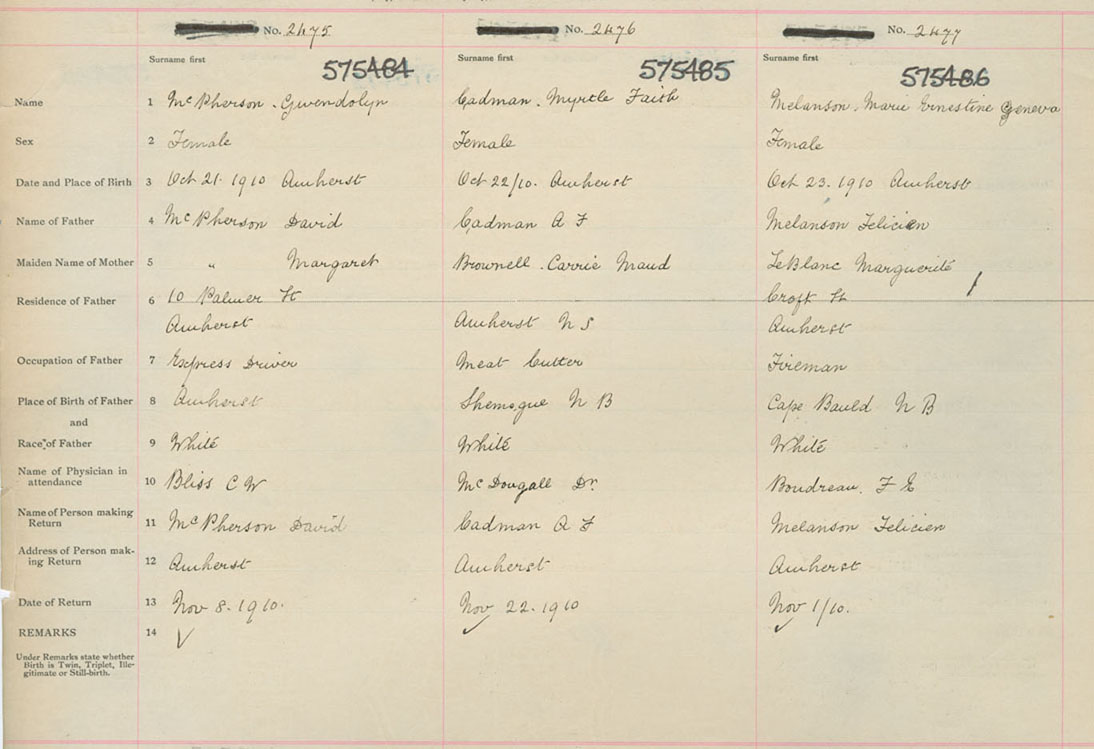 No. 2475 No. 2476 No. 2477
Surname first Surname first Surname first
575484 575485 575486
Name 1 McPherson. Gwendolyn Cadman. Myrtle Faith Melanson. Marie Ernestine Geneva
Sex 2 Female Female Female
Date and Place of Birth 3 Oct 21. 1910 Amherst Oct 22/10. Amherst Oct 23. 1910 Amherst
Name of Father 4 McPherson David Cadman A F Melanson Felicien
Maiden Name of Mother 5 " Margaret Brownell. Carrie Maud LeBlanc Marguerite
Residence of Father 6 10 Palmer St Croft St
Amherst Amherst N S Amherst
Occupation of Father 7 Express Driver Meat Cutter Fireman
Place of Birth of Father 8 Amherst Shemogue N B Cape Bauld N B
and
Race of Father 9 White White White
Name of Physician in
attendance 10 Bliss C W McDougall Dr. Boudreau. F E
Name of Person making
Return 11 McPherson David Cadman A F Melanson Felicien
Address of Person mak-
ing Return 12 Amherst Amherst Amherst
Date of Return 13 Nov 8. 1910. Nov 22. 1910 Nov 1/10.
REMARKS 14 ✓ ✓ ✓
Under Remarks state whether
Birth is Twin, Triplet, Ille-
gitimate or Still-birth.